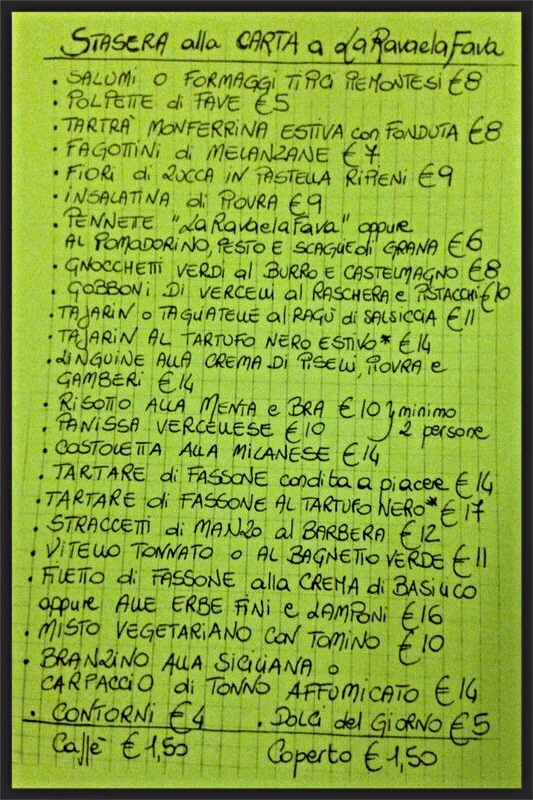 STASERA alla CARTA a LaRavaelaFava
• SALUMI O FORMAGGI TIPICI PIEMONTESI €8
• POLPETTE di FAVE €5
• TARTRA' MONFERRINA ESTIVA con FONDUTA €8
• FAGOTTINI di MELANZANE €7
• FIORI di ZUCCA IN PASTELLA RIPIENI €9
• INSALATINA di PIOVRA €9
• PENNETE "LaRavaelaFava" oppure
AL POMODORINO, PESTO E SCAGLIE di GRANA €6
• GNOCCHETTI VERDI al BURRO E CASTELMAGNO €8
• GOBBONI DI VERCELLI al RASCHERA e PISTACCHI €10
• TAJARIN o TAGLIATELLE AL RAGÙ di SALSICCIA €11
• TAJARIN AL TARTUFO NERO ESTIVO* €14
• LINGUINE ALLA CREMA DI PISELLI, PIOVRA e
GAMBERI €14
• RISOTTO ALLA MENTA e BRA €10 } minimo
• PANISSA VERCELLESE €10 } 2 persone
• COSTOLETTA ALLA MILANESE €14
• TARTARE di FASSONE condita a piacere €14
• TARTARE di FASSONE AL TARTUFO NERO* €17
• STRACCETTI di MANZO al BARBERA €12
• VITELLO TONNATO o AL BAGNETTO VERDE €11
• FILETTO di FASSONE alla CREMA di BASILICO
oppure ALLE ERBE FINI e LAMPONI €16
• MISTO VEGETARIANO CON TOMINO €10
• BRANZINO ALLA SICILIANA o
CARPACCIO di TONNO AFFUMICATO €14
• CONTORNI €4 • DOLCI del GIORNO €5
Caffè €1,50 Coperto €1,50